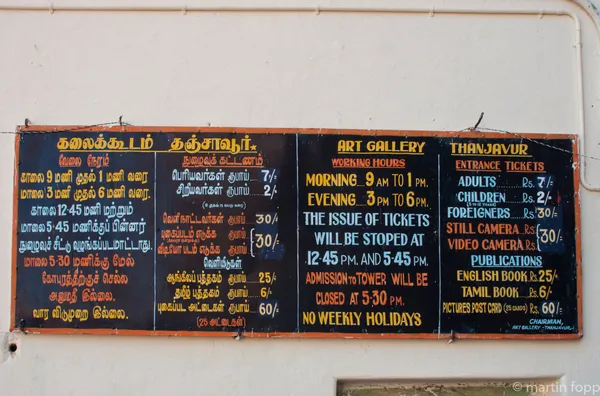 கலைக்கூடம் தஞ்சாவூர்
வேலை நேரம்
காலை 9 மணி முதல் 1 மணி வரை
மாலை 3 மணி முதல் 6 மணி வரை.
காலை 12-45 மணி மற்றும்
மாலை 5-45 மணிக்குப் பின்னர்
நுழைவுச் சீட்டு வழங்கப்படமாட்டாது.
மாலை 5-30 மணிக்கு மேல்
கோபுரத்திற்குச் செல்ல
அனுமதி இல்லை.
வார விடுமுறை இல்லை.
நுழைவுக் கட்டணம்
பெரியவர்கள் ரூபாய் 7/-
சிறியவர்கள் ரூபாய் 2/-
வெளிநாட்டவர்கள் ரூபாய் 30/-
புகைப்படம் எடுக்க ரூபாய்
வீடியோ படம் எடுக்க ரூபாய் 30/-
வெளியீடுகள்
ஆங்கிலப் புத்தகம் ரூபாய் 25/-
தமிழ் புத்தகம் ரூபாய் 6/-
புகைப்பட அட்டைகள் ரூபாய் 60/-
(25 அட்டைகள்)
ART GALLERY THANJAVUR
WORKING HOURS
MORNING 9 AM TO 1 PM.
EVENING 3 PM TO 6 PM.
THE ISSUE OF TICKETS
WILL BE STOPED AT
12·45 P.M. AND 5·45 P.M.
ADMISSION TO TOWER WILL BE
CLOSED AT 5·30 P.M.
NO WEEKLY HOLIDAYS
ENTRANCE TICKETS
ADULTS Rs. 7/-
CHILDREN Rs. 2/-
FOREIGNERS Rs. 30/-
STILL CAMERA Rs.
VIDEO CAMERA Rs. 30/-
PUBLICATIONS
ENGLISH BOOK Rs. 25/-
TAMIL BOOK Rs. 6/-
PICTURES POST CARD (25 CARDS) Rs. 60/-
CHAIRMAN,
ART GALLERY - THANJAVUR
© martin fopp